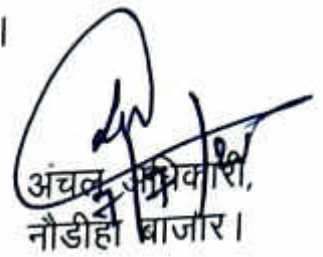 ।
अंचल अधिकारी,
नौडीहा बाजार।